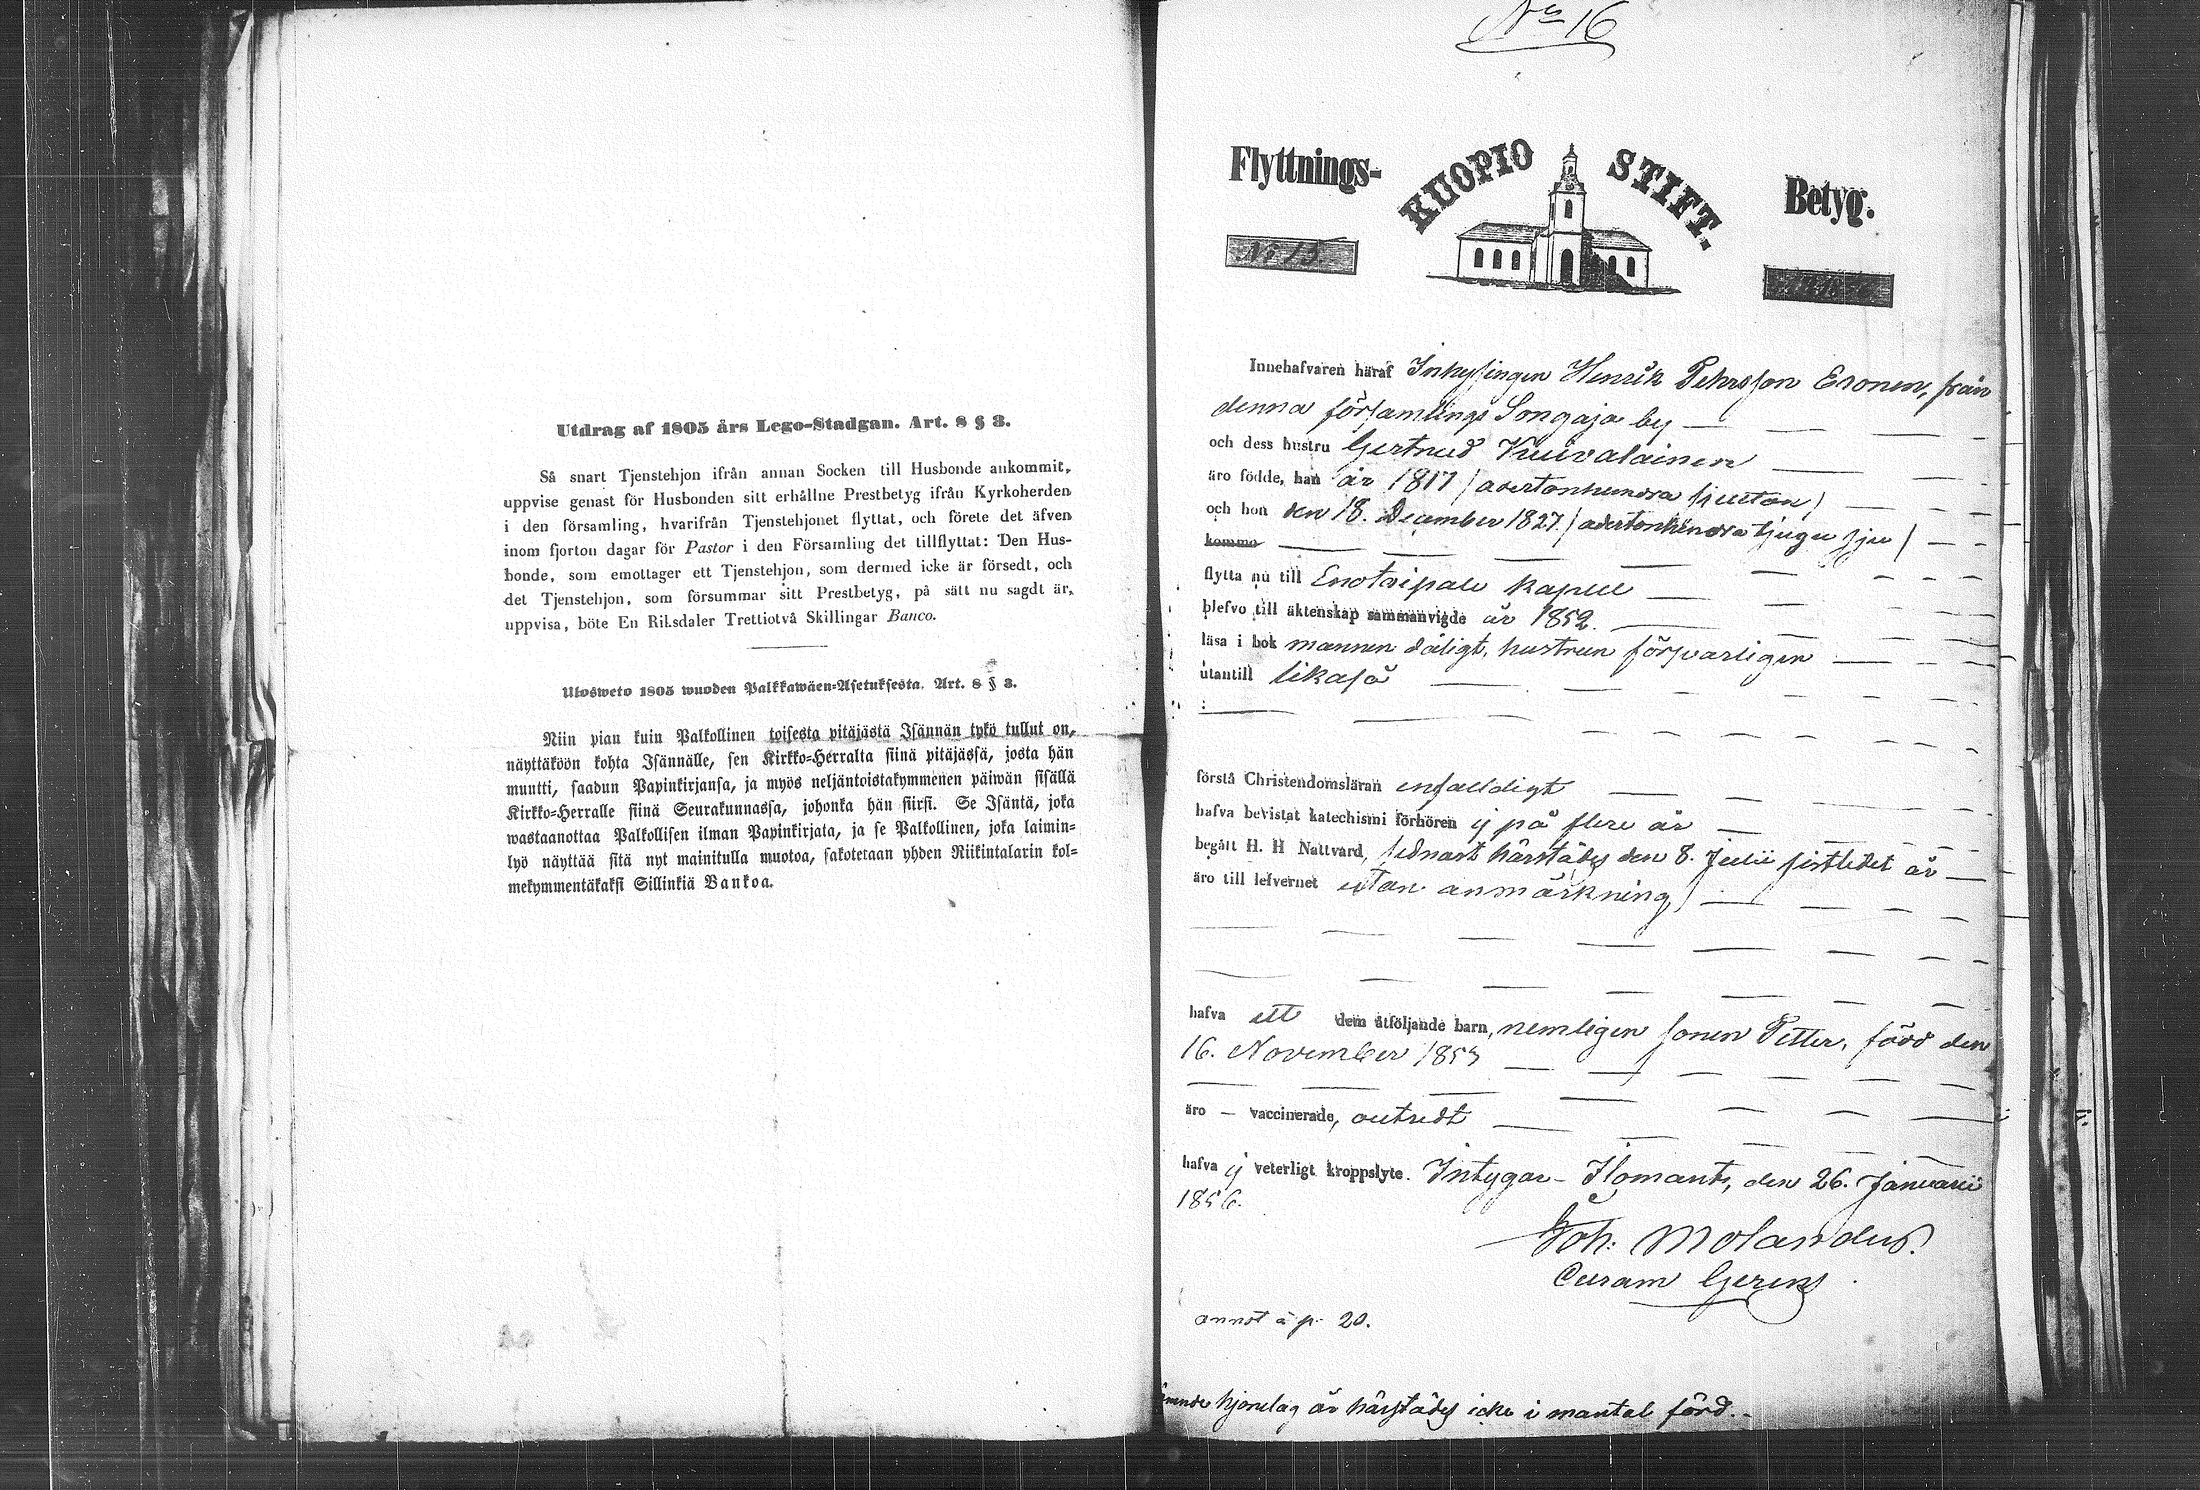 Utdrag af 1805 års Lego-Stadgan. Art. 8 § 3.
Så snart Tjenstehjon ifrån annan Socken till Husbonde ankommit,
uppvise genast för Husbonden sitt erhållne Prestbetyg ifrån Kyrkoherden
i den församling, hvarifrån Tjenstehjonet flyttat, och förete det äfven
inom fjorton dagar för Pastor i den Församling det tillflyttat: Den Hus-
bonde, som emottager ett Tjenstehjon, som dermed icke är försedt, och
det Tjenstehjon, som försummar sitt Prestbetyg, på sätt nu sagdt är,
uppvisa, böte En Riksdaler Trettiotvå Skillingar Banco.
Ulosweto 1805 wuoden Palkkawäen-Asetuksesta. Art. 8 § 3.
Niin pian kuin Palkollinen toisesta pitäjästä Isännän tykö tullut on,
näyttäköön kohta Isännälle, sen Kirkko-Herralta siinä pitäjässä, josta hän
muutti, saadun Papinkirjansa, ja myös neljäntoistakymmenen päiwän sisällä
Kirkko-Herralle siinä Seurakunnassa, johonka hän siirsi. Se Isäntä, joka
wastaanottaa Palkollisen ilman Papinkirjata, ja se Palkollinen, joka laimin-
lyö näyttää sitä nyt mainitulla muotoa, sakotetaan yhden Riikintalarin kol-
mekymmentäkaksi Sillinkiä Bankoa.
No 16
Flyttnings- KUOPIO STIFT. Betyg.
No 15.
Innehafvaren häraf Inhysingen Henrik Pehrsson Eronen, från
denna församlings Songaja by
och dess hustru Gertrud Kuivalainen
äro födde, han år 1817 /adertonhundra sjutton/
och hon den 18. December 1827. /adertonhundra tjugu sju/
komma
flytta nu till Enotaipale kapell
blefvo till äktenskap sammanvigde år 1852.
läsa i bok mannen dåligt, hustrun försvarligen
utantill likaså
förstå Christendomsläran enfaldigt
hafva bevistat katechismi förhören ej på flere år
begått H. H Nattvard, sednast härstädes den 8. Julii sistledet år
äro till lefvernet utan anmärkning
hafva ett dem åtföljande barn, nemligen sonen Petter, född den
16. November 1853
äro – vaccinerade, outredt
hafva ej veterligt kroppslyte. Intygar – Ilomants, den 26. Januarii
1856.
Joh: Molandus.
Curam Gerens
annot à p. 20.
hjonelag är härstädes icke i mantal förd.